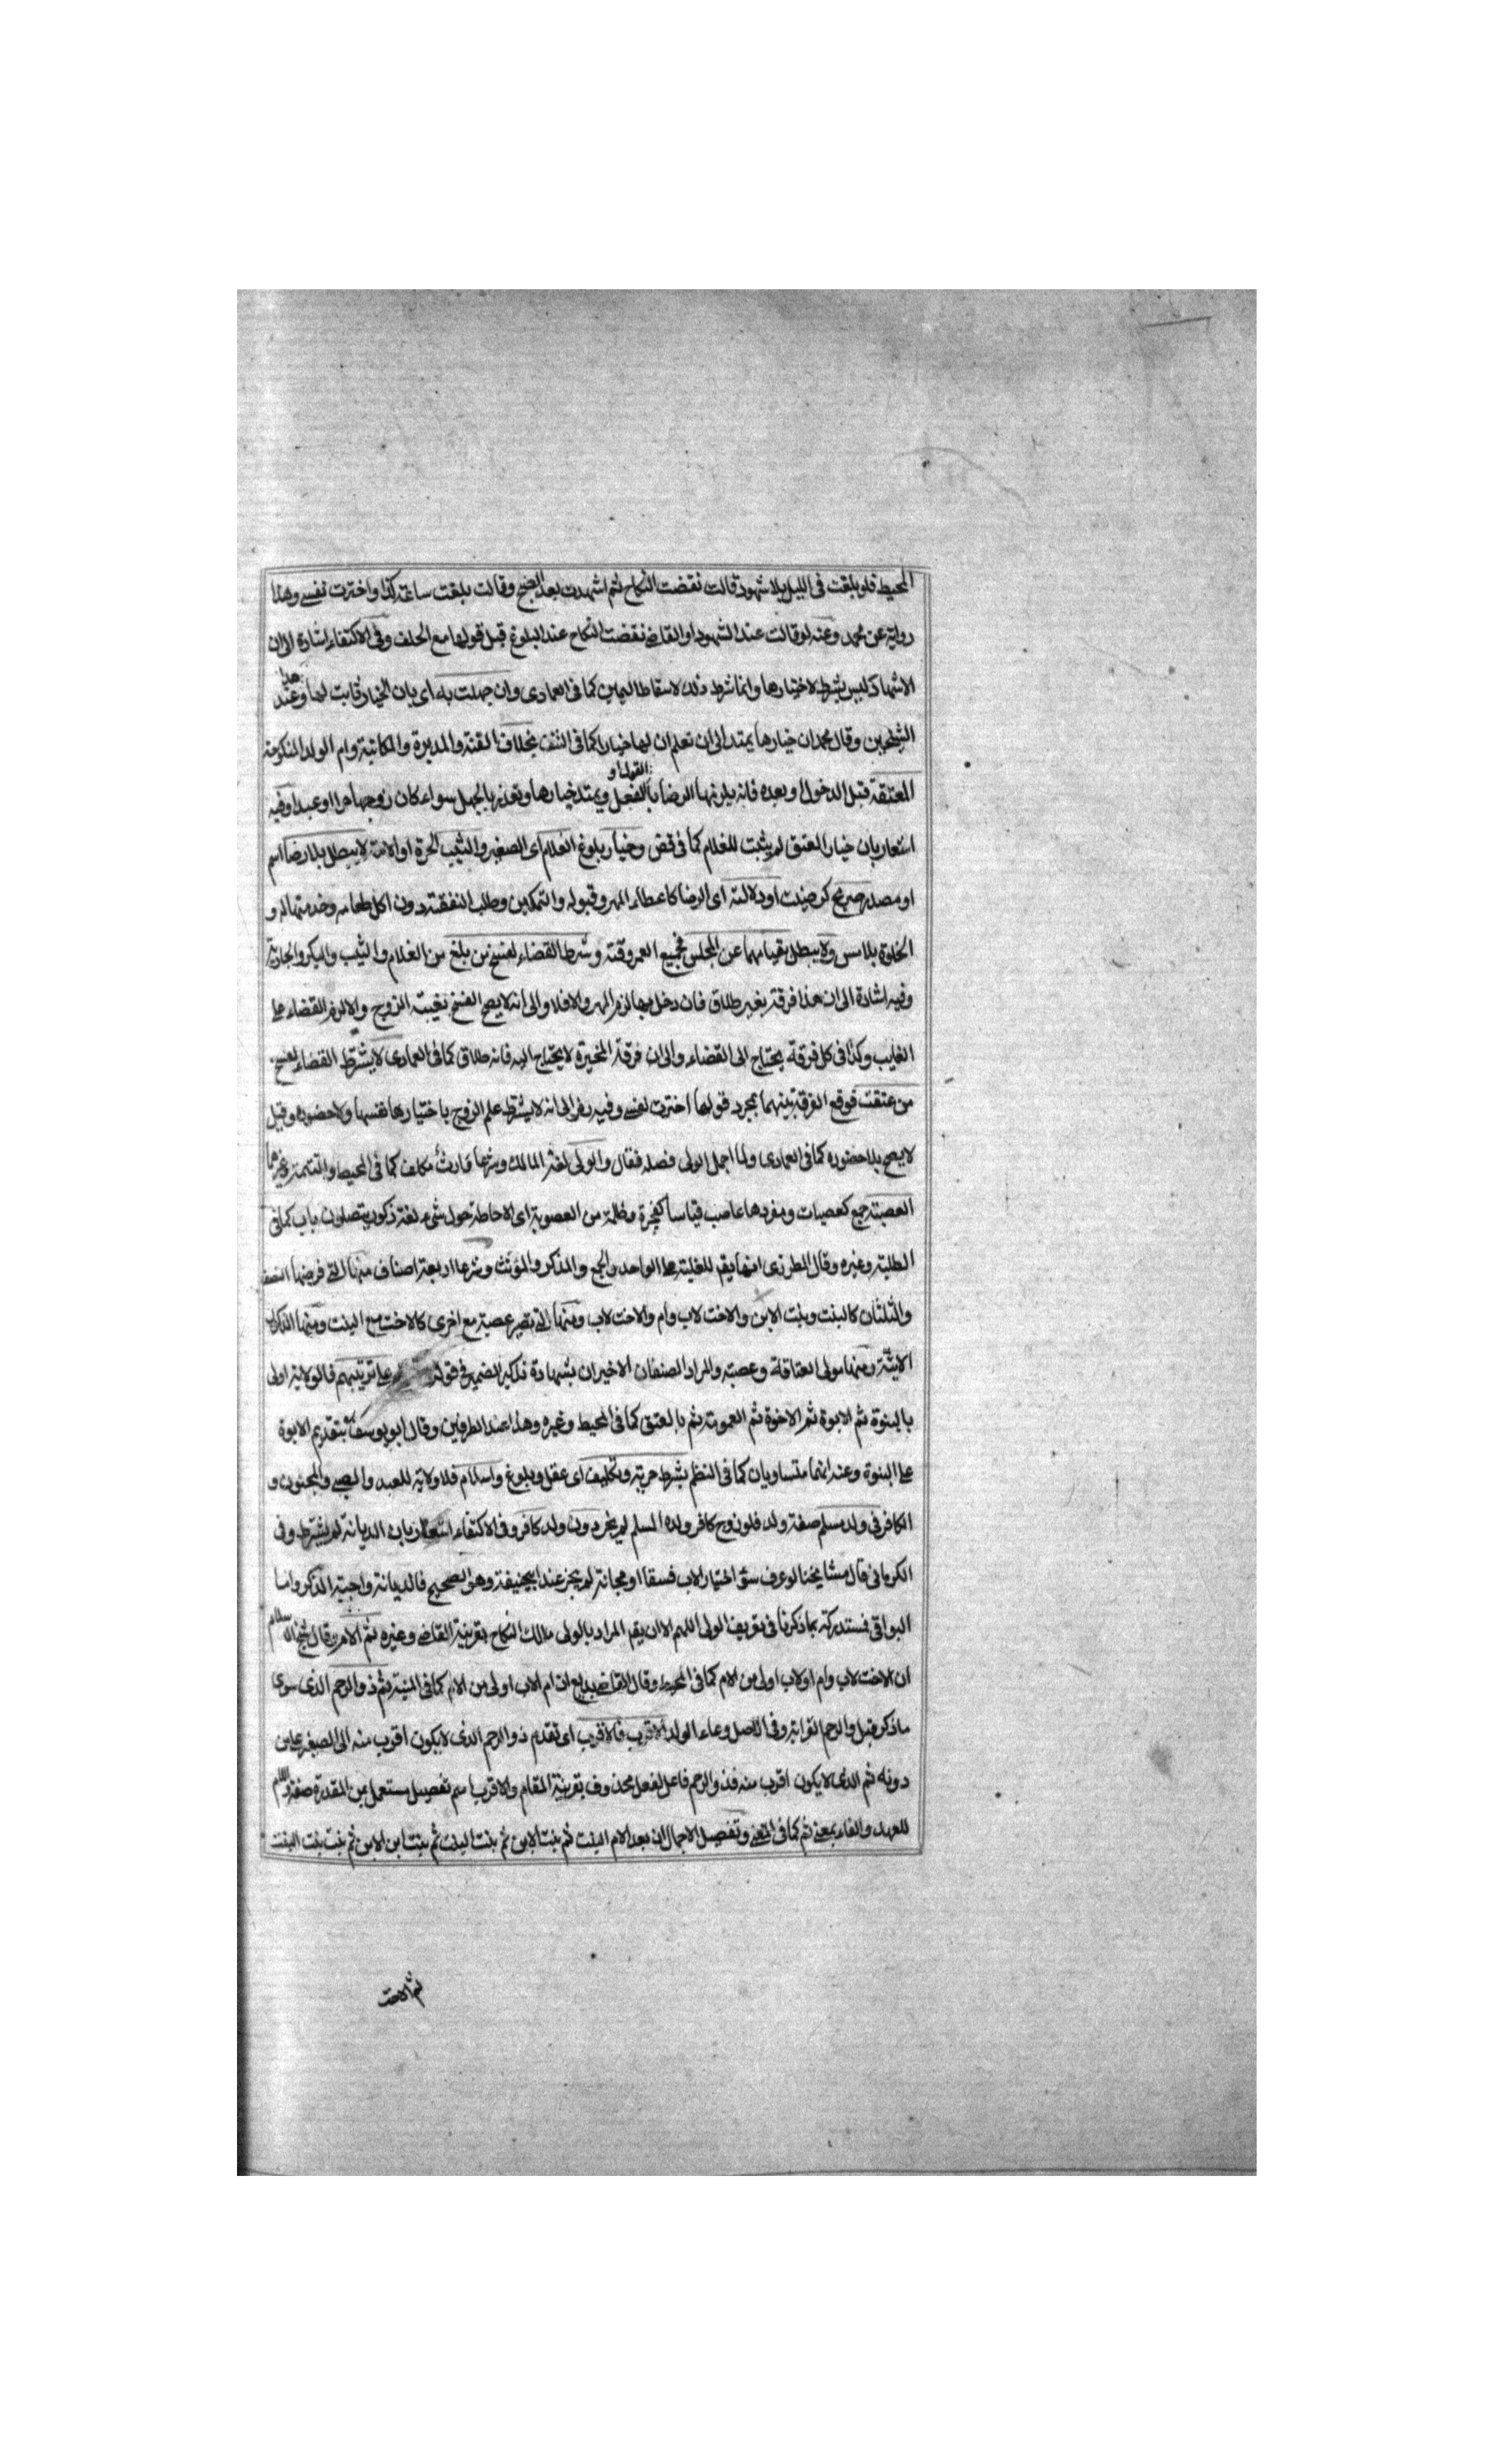 المحيط فلو بلغت فى الليل بلا شهود قالت نقضت النكاح ثم اشهدت بعد الصبح وقالت بلغت ساعة كذا واخترت نفسى وهذا
رواية عن محمد وعنه لو قالت عند الشهود او القاضى نقضت النكاح عند البلوغ قبل قولها مع الحلف وفى الاكتفاء اشارة الى ان
الاشهاد ليس بشرط لاختيارها وانما شرط ذلك لاسقاط اليمين كما فى العمادى وان جهلت به اى بان الخيار ثابت لها وهذا عند
الشيخين وقال محمد ان خيارها يمتد الى ان تعلم ان لها خيارا كما فى النتف بخلاف القنة والمدبرة والمكاتبة وام الولد المنكوحة
المعتقة قبل الدخول او بعده فانه يلزمها الرضا بالقول او الفعل ويمتد خيارها وتعذر بالجهل سواء كان زوجها حرا او عبدا وفيه
اشعار بان خيار العتق لم يثبت للغلام كما فى قض وخيار بلوغ الغلام اى الصغير والثيب الحرة او الامة لا يبطل بلا رضا اسم
او مصدر صريح كرضيت او دلالة اى الرضا كاعطاء المهر وقبوله والتمكين وطلب النفقة دون اكل طعامه وخدمتها له و
الخلوة بلا مس ولا يبطل بقيامهما عن المجلس فجميع العمر وقته وشرط القضاء لفسخ من بلغ من الغلام والثيب والبكر والجارية
وفيه اشارة الى ان هذا فرقة بغير طلاق فان دخل بها لزم المهر والا فلا والى انه لا يصح الفسخ بغيبة الزوج والا لزم القضاء على
الغايب وكذا فى كل فرقة يحتاج الى القضاء والى ان فرقة المخيرة لا يحتاج اليه فانه طلاق كما فى العمادى لا يشترط القضاء لفسخ
من عتقت فوقع الفرقة بينهما بمجرد قولها اخترت نفسى وفيه رمز الى انه لا يشترط علم الزوج باختيارها نفسها ولا حضوره وقيل
لا يصح بلا حضوره كما فى العمادى ولما اجمل الولى فصله فقال والولى لغة المالك وشرعا وارث مكلف كما فى المحيط والتتمة وغيرهما
العصبة جمع كعصبات ومفردها عاصب قياسا كفجرة وظلمة من العصوبة اى الاحاطة حول شىء لغة ذكور يتصلون باب كما فى
الطلبة وغيره وقال المطرزى انها يقع للغلبة على الواحد والجمع والمذكر والمؤنث وشرعا اربعة اصناف منها التى فرضها النصف
والثلثان كالبنت وبنت الابن والاخت لاب وام والاخت لاب ومنها التى تصير عصبة مع اخرى كالاخت مع البنت ومنها الذكر
ومنها مولى العتاقة وعصبته والمراد الصنفان الاخيران بشهادة تذكير الضمير فى قوله على ترتيبهم فالولاية اولى
بالبنوة ثم الابوة ثم الاخوة ثم العمومة ثم بالعتق كما فى المحيط وغيره وهذا عند الطرفين وقال ابو يوسف بتقديم الابوة
على البنوة وعنه انهما متساويان كما فى النظم بشرط حرية وتكليف اى عقل وبلوغ واسلام فلا ولاية للعبد والصبى والمجنون و
الكافر فى ولد مسلم صفة ولد فلو زوج كافر ولده المسلم لم يجز دون ولد كافر وفى الاكتفاء اشعار بان الديانة لم يشترط وفى
الكرمانى قال مشايخنا لو عرف سوء اختيار الاب فسقا او مجانة لم يجز عند ابيحنيفة وهو الصحيح فالديانة واجبة الذكر واما
البواقى فمستدركة بما ذكرنا فى تعريف الولى اللهم الا ان يقع المراد بالولى مالك النكاح بقرينة القاضى وغيره ثم الام قال شيخ الاسلام
ان الاخت لاب وام او لاب اولى من الام كما فى المحيط وقال القاضى بديع ان ام الاب اولى من الام كما فى المنية ثم ذو الرحم الذى سوى
ما ذكر قبل والرحم القرابة وفى الاصل وعاء الولد الاقرب فالاقرب اى تقدم ذو الرحم الذى لا يكون اقرب منه الى الصغير على من
دونه ثم الذى لا يكون اقرب منه فذو الرحم فاعل لفعل محذوف بقرينة المقام والاقرب اسم تفصيل مستعمل بمن المقدرة صفة واللام
للعهد والفاء بمعنى ثم كما فى المغنى وتفصيل الاجمال ان بعد الام البنت ثم بنت الابن ثم بنت البنت ثم بنت ابن الابن ثم بنت بنت البنت
ثم الاخت